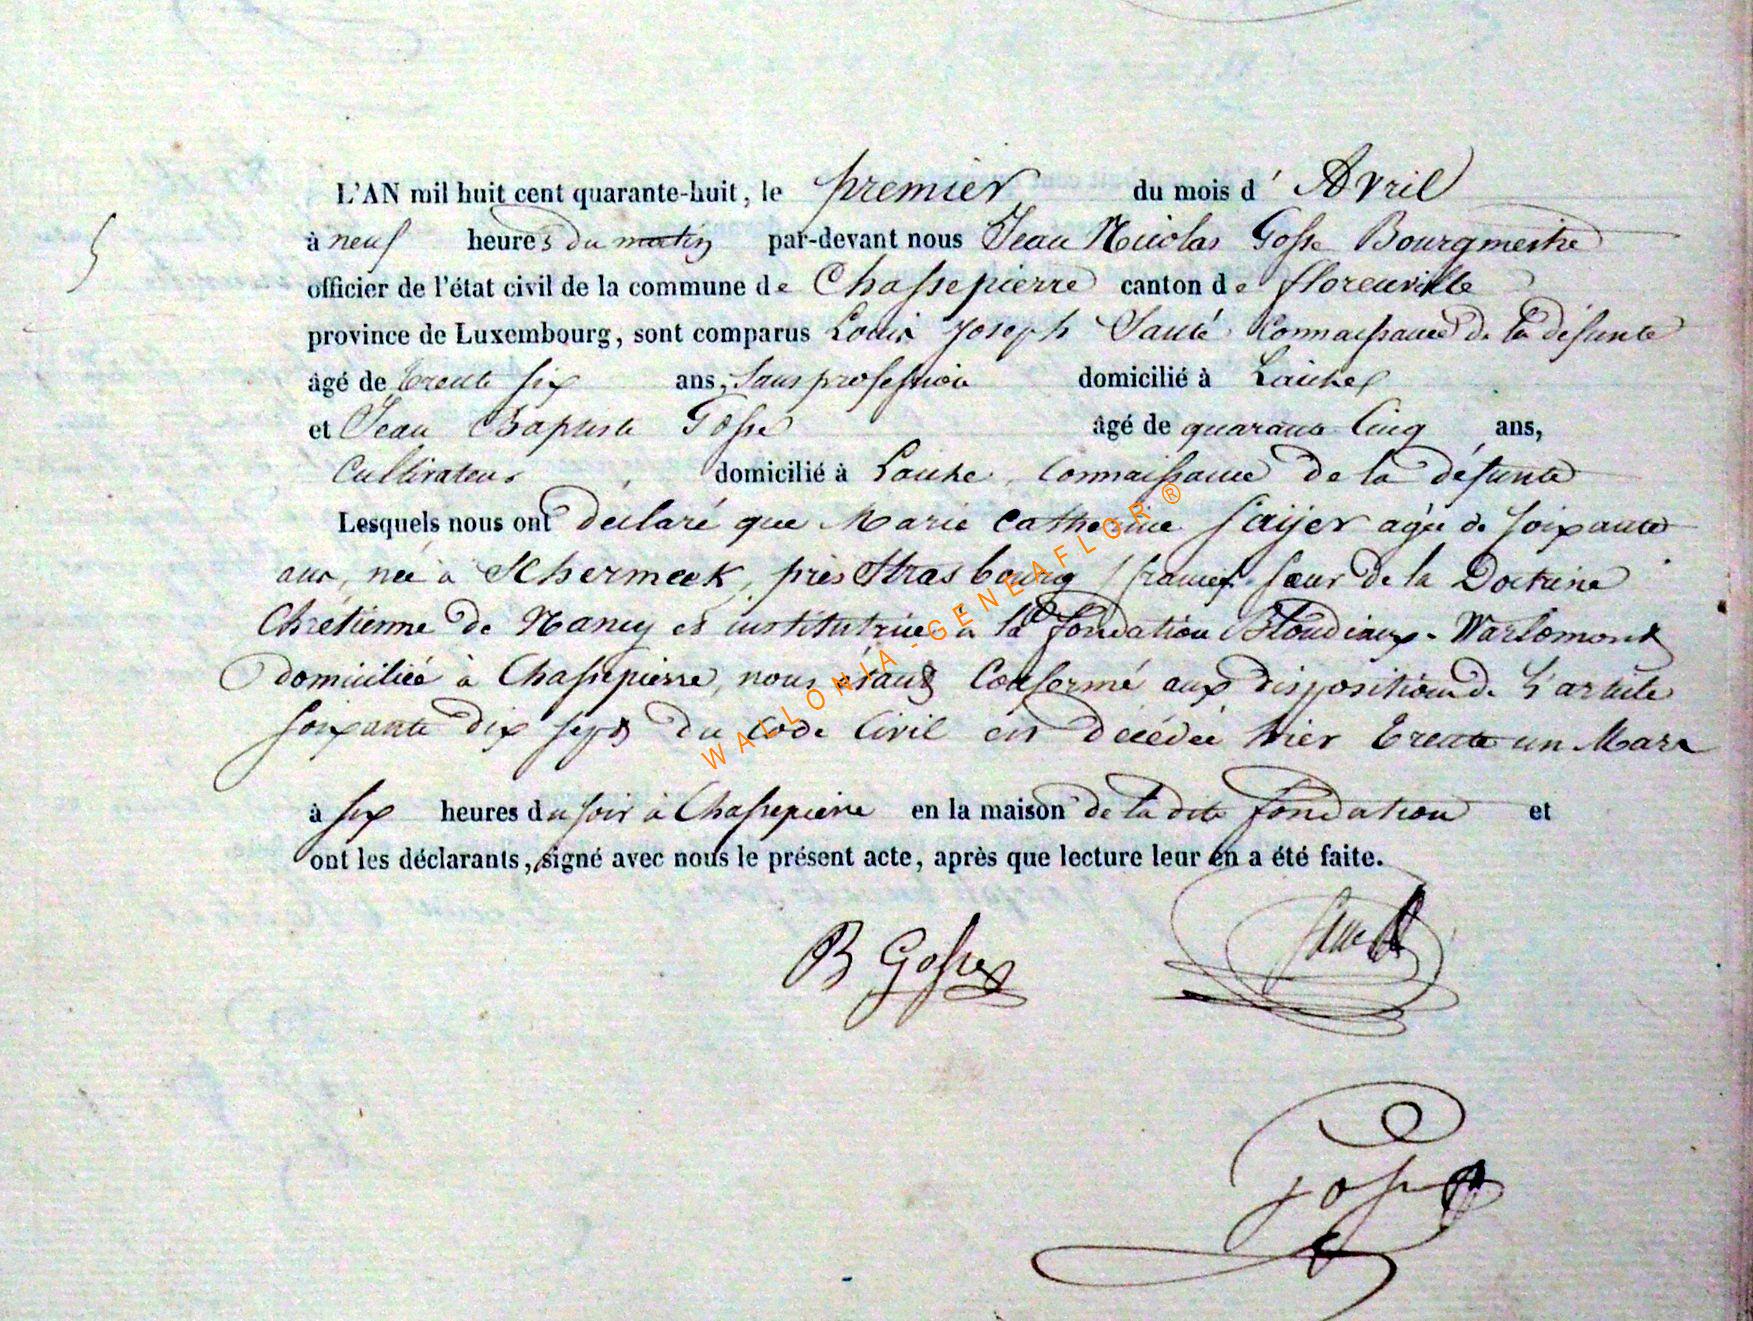 L'AN mil huit cent quarante-huit, le premier du mois d' Avril
5
à neuf heures du matin par-devant nous Jean Nicolas Gosse Bourgmestre
officier de l'état civil de la commune de Chassepierre canton de florenville
province de Luxembourg, sont comparus Louis Joseph connaissance de la défunte
âgé de trente six ans, sans profession domicilié à Laiche
et Jean Baptiste Gosse âgé de quarante cinq ans,
Cultivateur, domicilié à Laiche, connaissance de la défunte
Lesquels nous ont déclaré que Marie Catherine agée de soixante
ans, née à Schermeek, près Strasbourg, france, sœur de la Doctrine
Chrétienne de Nancy et institutrice à la fondation Warlomont
domiciliée à Chassepierre, nous étant conformé aux dispositions de l'article
soixante dix sept du code civil est décédée hier trente un Mars
à six heures du soir à Chassepierre en la maison de la dite fondation et
ont les déclarants, signé avec nous le présent acte, après que lecture leur en a été faite.
B Gosse
Gosse
WALLONIA-GENEAFLOR ®